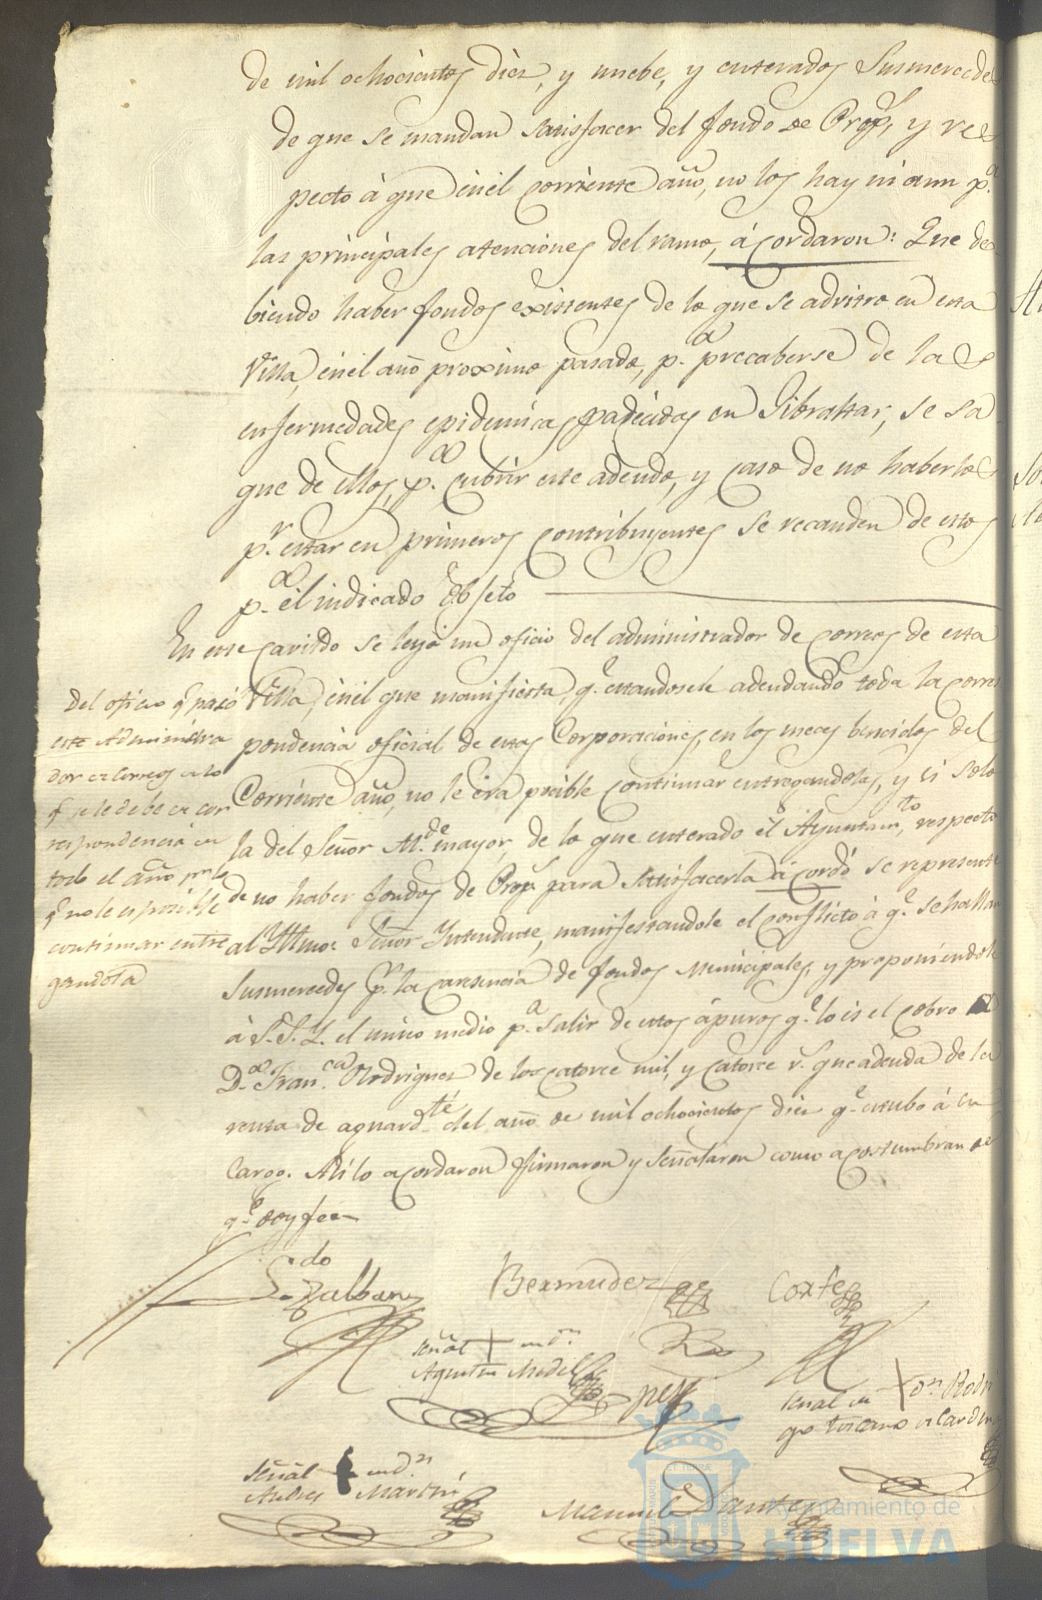 de mil ochocientos diez, y nuebe, y enterados Susmercedes
de que se mandan satisfacer del fondo de Prop.s, y res
pecto á que enél corriente año, no los hay ni aun p.a
las principales atenciones del ramo, ácordaron: Que de
biendo haber fondos existentes de lo que se advitró en esta
Villa, enél año proximo pasado, p.a precaberse de las
enfermedades epidemicas padecidas en Gibraltar, se sa
que de ellos, p.a cubrir este adeudo, y caso de no haberlos
p.r estar en primeros contribuyentes se recauden de estos
p.a él indicado Obgeto
En este cavildo se leyó un oficio del administrador de correos de esta
Villa, enél que manifiesta, q.e estandosele adeudando toda la corres
pondencia oficial de estas Corporaciones, en los meses bencidos del
Corriente año, no le era posible continuar entregandolas, y si solo
la del Señor Alc.de mayor, de lo que enterado él Ayuntam.to, respecto
de no haber fondos de Prop.s para satisfacerla ácordó se represente
al Yllmo. Señor Yntendente, manifestandole el conflicto á q.e se hallan
Susmercedes p.r la caresencia de fondos Municipales, y proponiendole
á S.S.Y. el unico medio p.a salir de estos ápuros q.e lo es el cobro
D.a Fran.ca Rodriguez de los catorce mil, y catorce r.s que adeuda de la
renta de aguard.te del año de mil ochocientos diez q.e estubo á su
Cargo. Asi lo acordaron firmaron y señalaron como acostumbran de
q.e doy fee
Del oficio q.e pasó
este Administra
dor de Correos de lo
q.e se le debe de cor
respondencia en
todo el año p.r lo
q.e no le es posible
continuar entre
gandola
L.do
Bermudez
Cortes
señal + de D.n
Agustin
señal de + D.n Rodri
go toscano de Cardenas
señal + de D.n
Andres Martin
Manuel
Ayuntamiento de
HUELVA